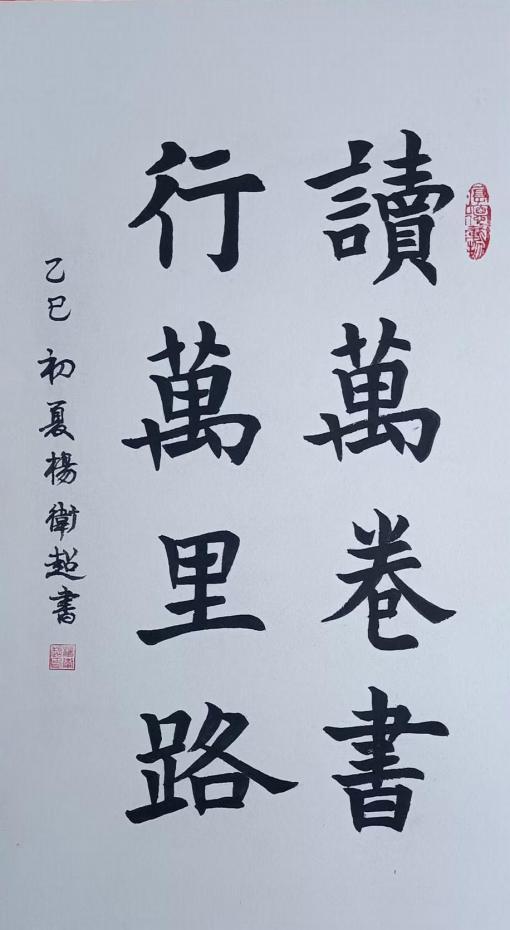 讀萬卷書
行萬里路
乙巳初夏楊衛超書